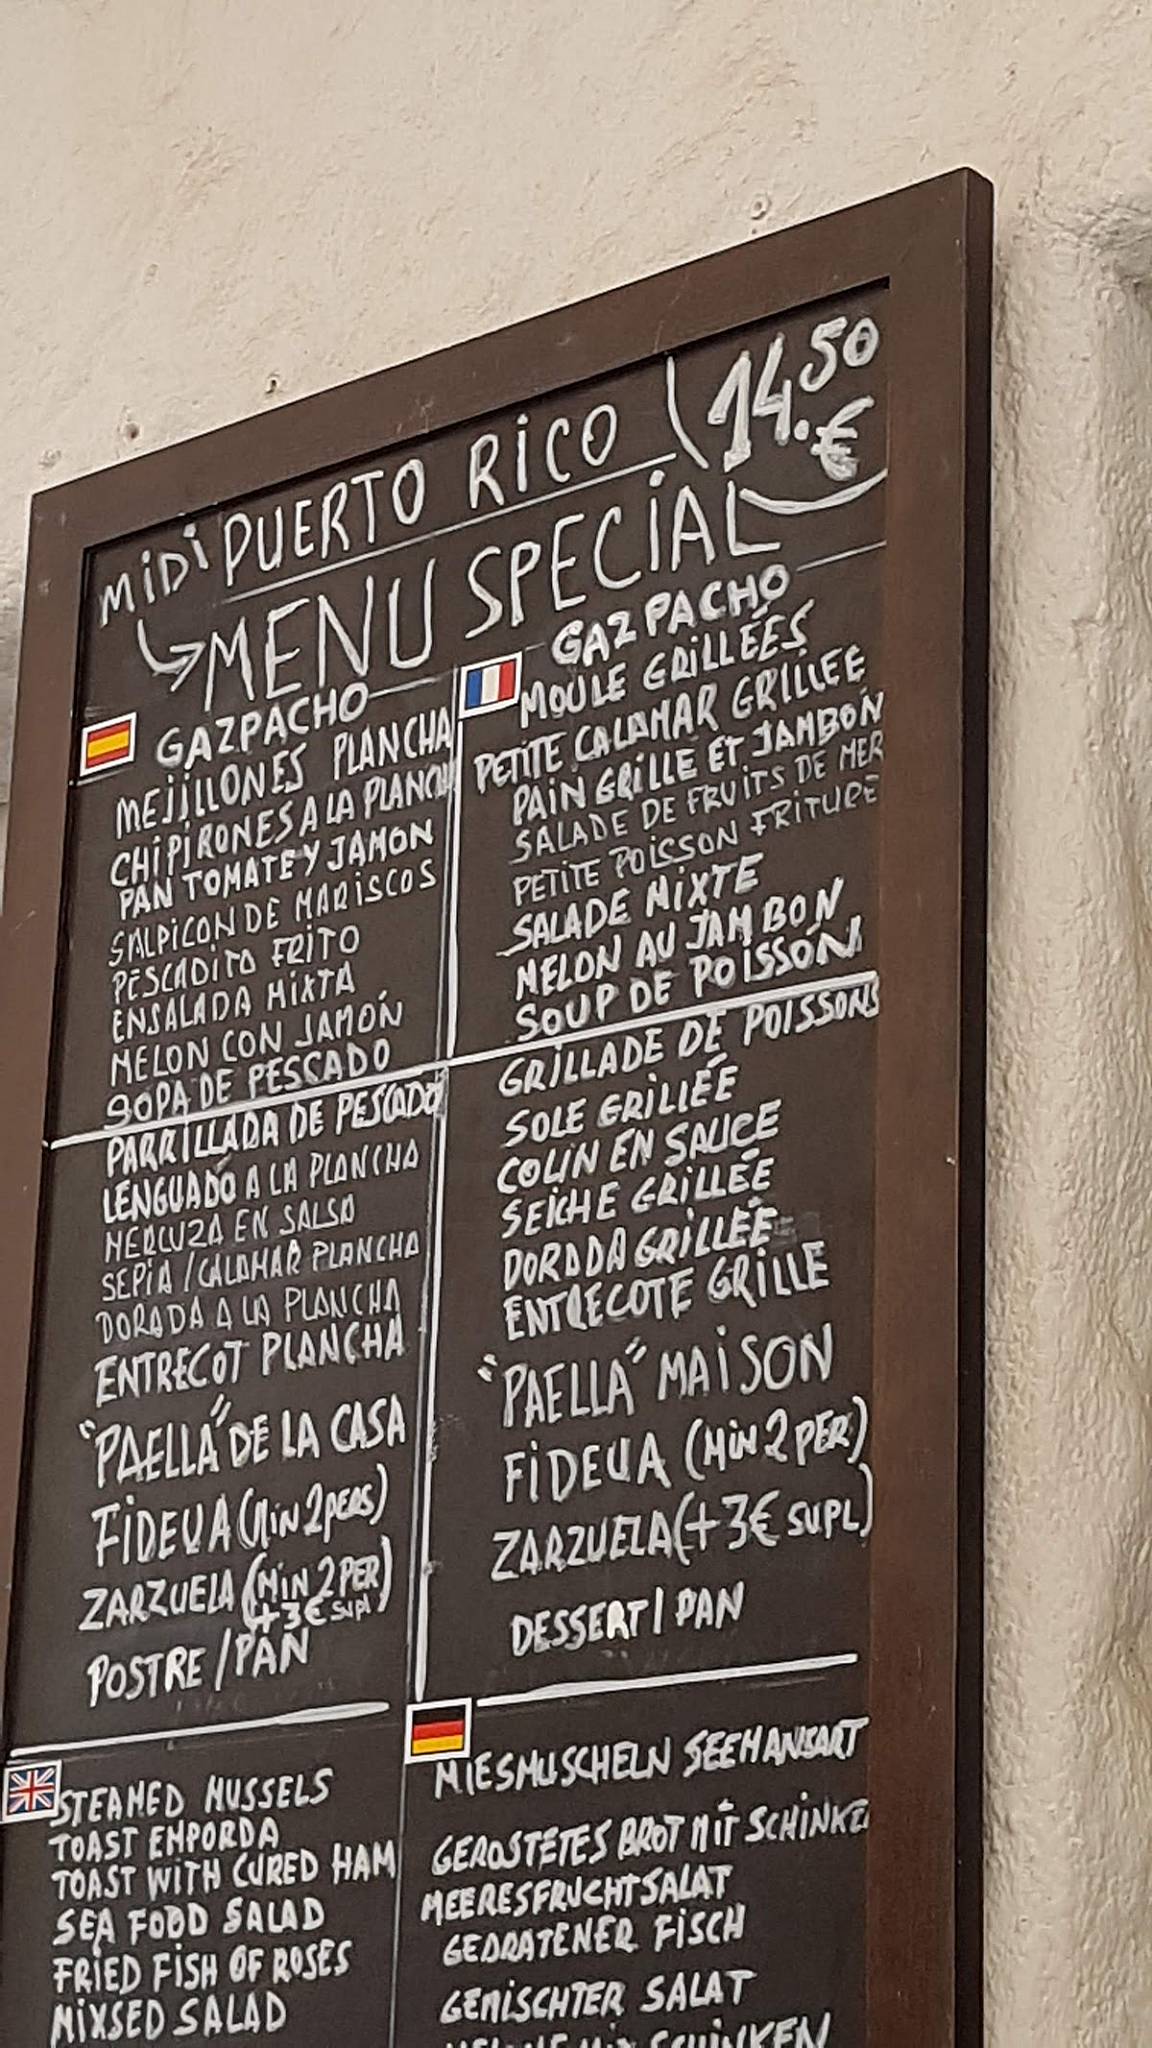 MiDi PUERTO RiCO 14.50 €
MENU SPECiAL
GAZPACHO
MEJiLLONES PLANCHA
CHiPiRONES A LA PLANCHA
PAN TOMATE Y JAMON
SALPiCON DE MARiSCOS
PESCADITO FRITO
ENSALADA MIXTA
MELON CON JAMÓN
SOPA DE PESCADO
PARRILLADA DE PESCADO
LENGUADO A LA PLANCHA
MERLUZA EN SALSA
SEPIA / CALAMAR PLANCHA
DORADA A LA PLANCHA
ENTRECOT PLANCHA
"PAELLA" DE LA CASA
FiDEUA (Min 2 PERS)
ZARZUELA (MiN 2 PER)
+3€ SUPL
POSTRE / PAN
GAZPACHO
MOULE GRiLLÉES
PETITE CALAMAR GRILLEE
PAiN GRILLE ET JAMBON
SALADE DE FRUITS DE MER
PETITE POISSON FRITURE
SALADE MiXTE
MELON AU JAMBON
SOUP DE POiSSON
GRiLLADE DE POISSONS
SOLE GRiLLÉE
COLIN EN SAUCE
SEICHE GRiLLÉE
DORADA GRiLLÉE
ENTRECOTE GRILLE
"PAELLA" MAiSON
FiDEUA (MiN 2 PER)
ZARZUELA (+3€ SUPL)
DESSERT / PAN
STEAMED MUSSELS
TOAST EMPORDA
TOAST WiTH CURED HAM
SEA FOOD SALAD
FRiED FiSH OF ROSES
MiXSED SALAD
MIESMUSCHELN SEEMANSART
GEROSTETES BROT MiT SCHiNKE
MEERESFRUCHTSALAT
GEBRATENER FiSCH
GEMiSCHTER SALAT
SCHiNKEN